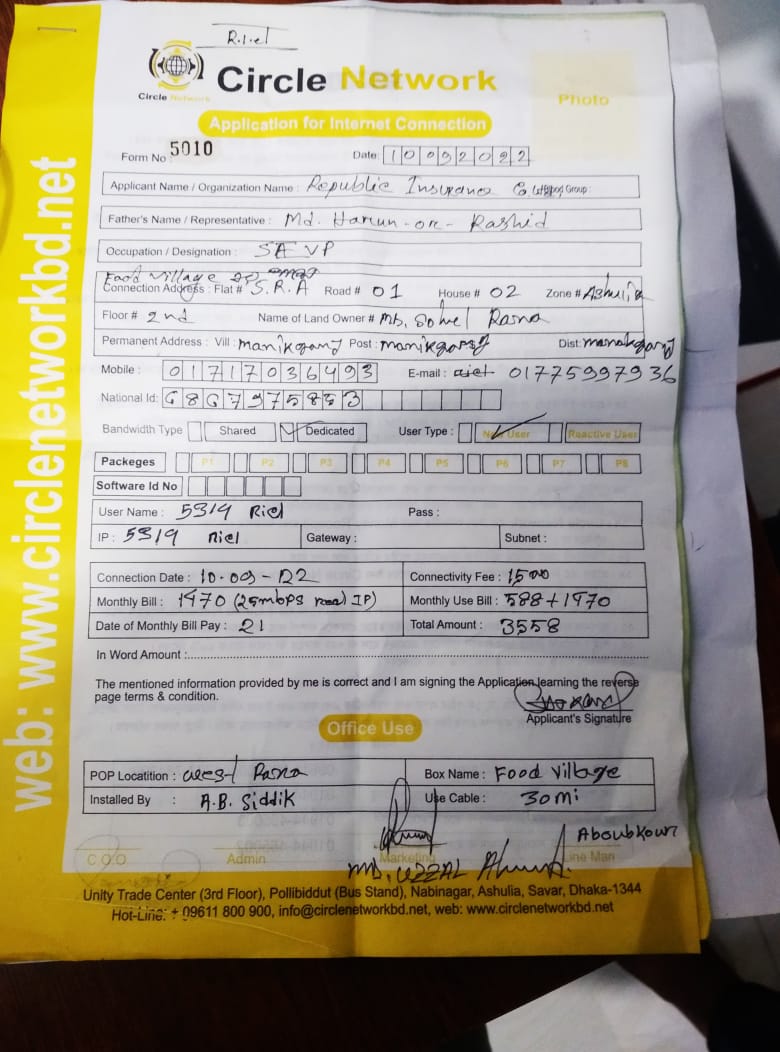 R.i.el
Circle Network
Circle Network
Photo
Application for Internet Connection
Form No 5010
Date: 10092022
Applicant Name / Organization Name : Republic Insurance Co. Group:
Father's Name / Representative : Md. Harun-or-Rashid
Occupation / Designation : SAVP
Food Village
Connection Address : Flat # S.R.A Road # 01 House # 02 Zone # Ashulia
Floor # 2nd Name of Land Owner # Md, Sohel Rana
Permanent Address : Vill : manikgong Post : manikgong Dist: manikgong
Mobile : 01717036493 E-mail : 01775997936
National Id: 6867975853
Bandwidth Type Shared Dedicated User Type : New User Reactive User
Packeges P1 P2 P3 P4 P5 P6 P7 P8
Software Id No
User Name : 5319 Riel Pass :
IP : 5319 Riel Gateway : Subnet :
Connection Date : 10-09-22 Connectivity Fee : 1500
Monthly Bill : 1470 (25mbps Real IP) Monthly Use Bill : 588+1470
Date of Monthly Bill Pay : 21 Total Amount : 3558
In Word Amount :
The mentioned information provided by me is correct and I am signing the Application learning the reverse
page terms & condition.
Applicant's Signature
Office Use
POP Locatition : west Rasna Box Name : Food Village
Installed By : A.B. Siddik Use Cable : 30mi
C.O.O Admin Marketing Line Man
MD. UZZAL Ahmed.
Unity Trade Center (3rd Floor), Pollibiddut (Bus Stand), Nabinagar, Ashulia, Savar, Dhaka-1344
Hot-Line: + 09611 800 900, info@circlenetworkbd.net, web: www.circlenetworkbd.net
web: www.circlenetworkbd.net